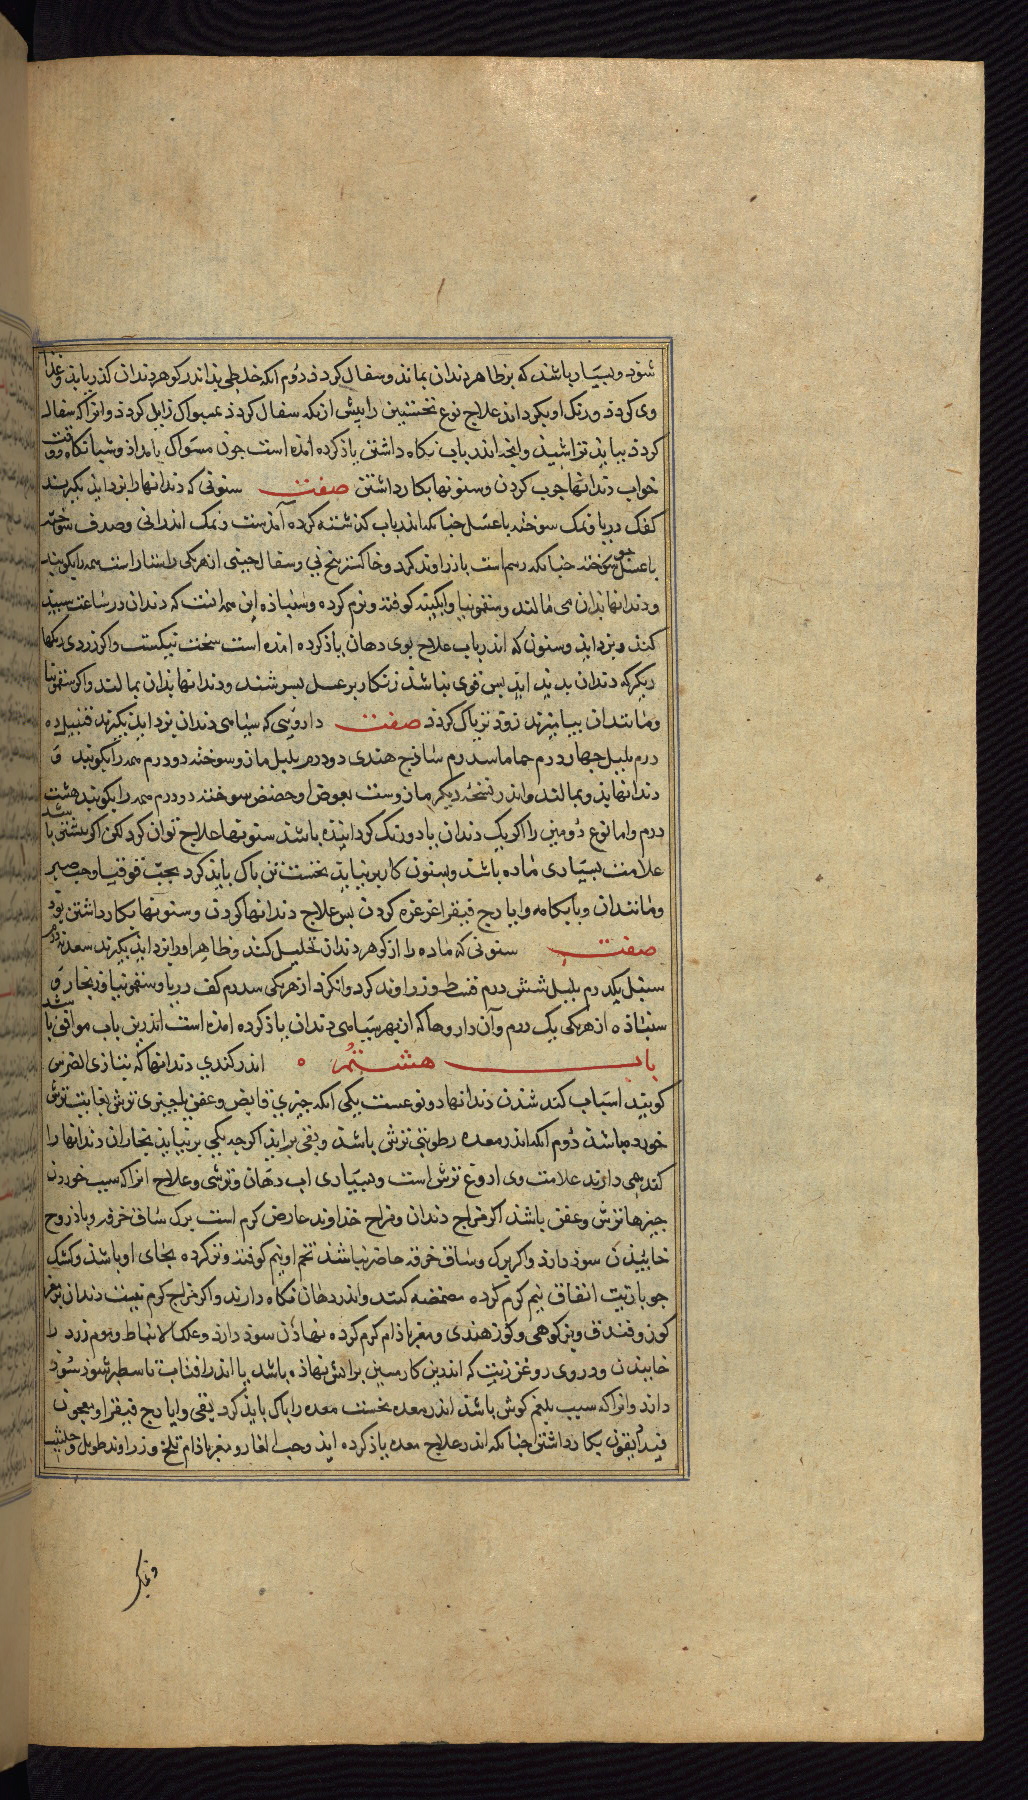 شود و بسیار باشد که بر ظاهر دندان بماند و سفال کردد دوم آنکه خلطی بد اندر کوهر دندان کذر یابد و غذا
وی کردد و رنک او بکرداند علاج نوع نخستین را بیش از آنکه سفال کردد بمسواک زایل کردد و انرا که سفاله
کردد بباید تراشید و آنجه اندر باب نکاه داشتن یاذ کرده آمده است جون مسواک بامداد و شبانکاه و وقت
خواب دندانها جرب کردن و سنونها بکار داشتن صفت سنونی که دندانها را بزداید بکیرند
کفک دریا و نمک سوخته با عسل جنانکه اندر باب کذشته کرده آمدست و نمک اندرانی و صدف سوخته
با عسل سوخته جنانکه رسم است با زراوند کرد و خاکستر بیخ نی و سفال جینی از هر یکی راستاراست همه را بکوبند
و دندانها بدان می مالند و سقمونیا و آبکینه کوفته و نرم کرده و سنباذه این همه آنست که دندان در ساعت سبید
کند و بزداید و سنونی که اندر باب علاج بوی دهان یاذ کرده آمده است سخت نیکست و اکر زردی رنکها
دیکر که دندان بدید آید بس قوی نباشد زنکار بر عسل بسرشند و دندانها بدان بمالند و اکر سقمونیا
و مانند آن بیامیزند زودتر باک کردد صفت دارویی که سیاهی دندان بزداید بکیرند قنبیل ده
درم بلبل جهار درم حماما سه درم ساذج هندی دو درم بلبل مازو سوخته دو درم همه را بکوبند و
دندانها بذو بمالند و اندر نسخهٔ دیکر مازو ست بعوض او حضض سوخته دو درم همه را بکوبند هشت
درم و اما نوع دومین را اکر یک دندان یا دو رنک کردانیده باشد سنونها علاج توان کرد لکن اکر بیشتر باشد
علامت بسیاری ماده باشد و بسنون کار برنیاید نخست تن باک باید کرد بحب قوقیا و حب صبر
و مانند آن و بآبکامه و ایارج فیقرا غرغره کردن بس علاج دندانها کردن و سنونها بکار داشتن بود
صفت سنونی که ماده را از کوهر دندان تحلیل کند و ظاهر او را بزداید بکیرند سعد سه درم
سنبل یک درم بلبل شش درم قسط و زراوند کرد و انکزد از هر یکی سه درم کف دریا و سقمونیا و زنجار و
سنباذه از هر یکی یک درم و آن داروها که از بهر سیاهی دندان یاذ کرده آمده است اندرین باب موافق باشد
باب هشتم اندر کندی دندانها که بتازی الضرس
کویند اسباب کند شدن دندانها دو نوعست یکی آنکه جیزی قابض و عفص یا جیزی ترش بغایت ترش
خورده باشد دوم آنکه اندر معده رطوبتی ترش باشد و بقی براید اکر جه بقی برنیاید بخار آن دندانها را
کند همی دارد علامت وی آروغ ترش است و بسیاری آب دهان و ترشی و علاج انرا که سبب خوردن
جیزها ترش و عفص باشد اکر مزاج دندان و مزاج خداوند عارض کرم است برک و ساق خرفه و باذروج
خاییدن سود دارد و اکر برک و ساق خرفه حاضر نباشد تخم او نیم کوفته و تر کرده بجای او باشد و کشک
جو با زیت انفاق نیم کرم کرده مضمضه کنند و اندر دهان نکاه دارند و اکر مزاج کرم نیست دندان بمغز
کوز و فندق و بن کوهی و کوز هندی و مغز باذام کرم کرده نهادن سود دارد و علک الانباط و موم زرد را
خاییدن و دردی روغن زیت که اندرین کار مسین بر آتش نهاده باشد یا اندر آفتاب تا سطبر شود سود
دارد و انرا که سبب بلغم کوش باشد اندر معده نخست معده را باک باید کرد بقی و ایارج فیقرا و معجون
فندادیقون بکار داشتن جنانکه اندر علاج معده یاذ کرده آید و حب الغار و مغز باذام تلخ و زراوند طویل و حلتیت
و نمک